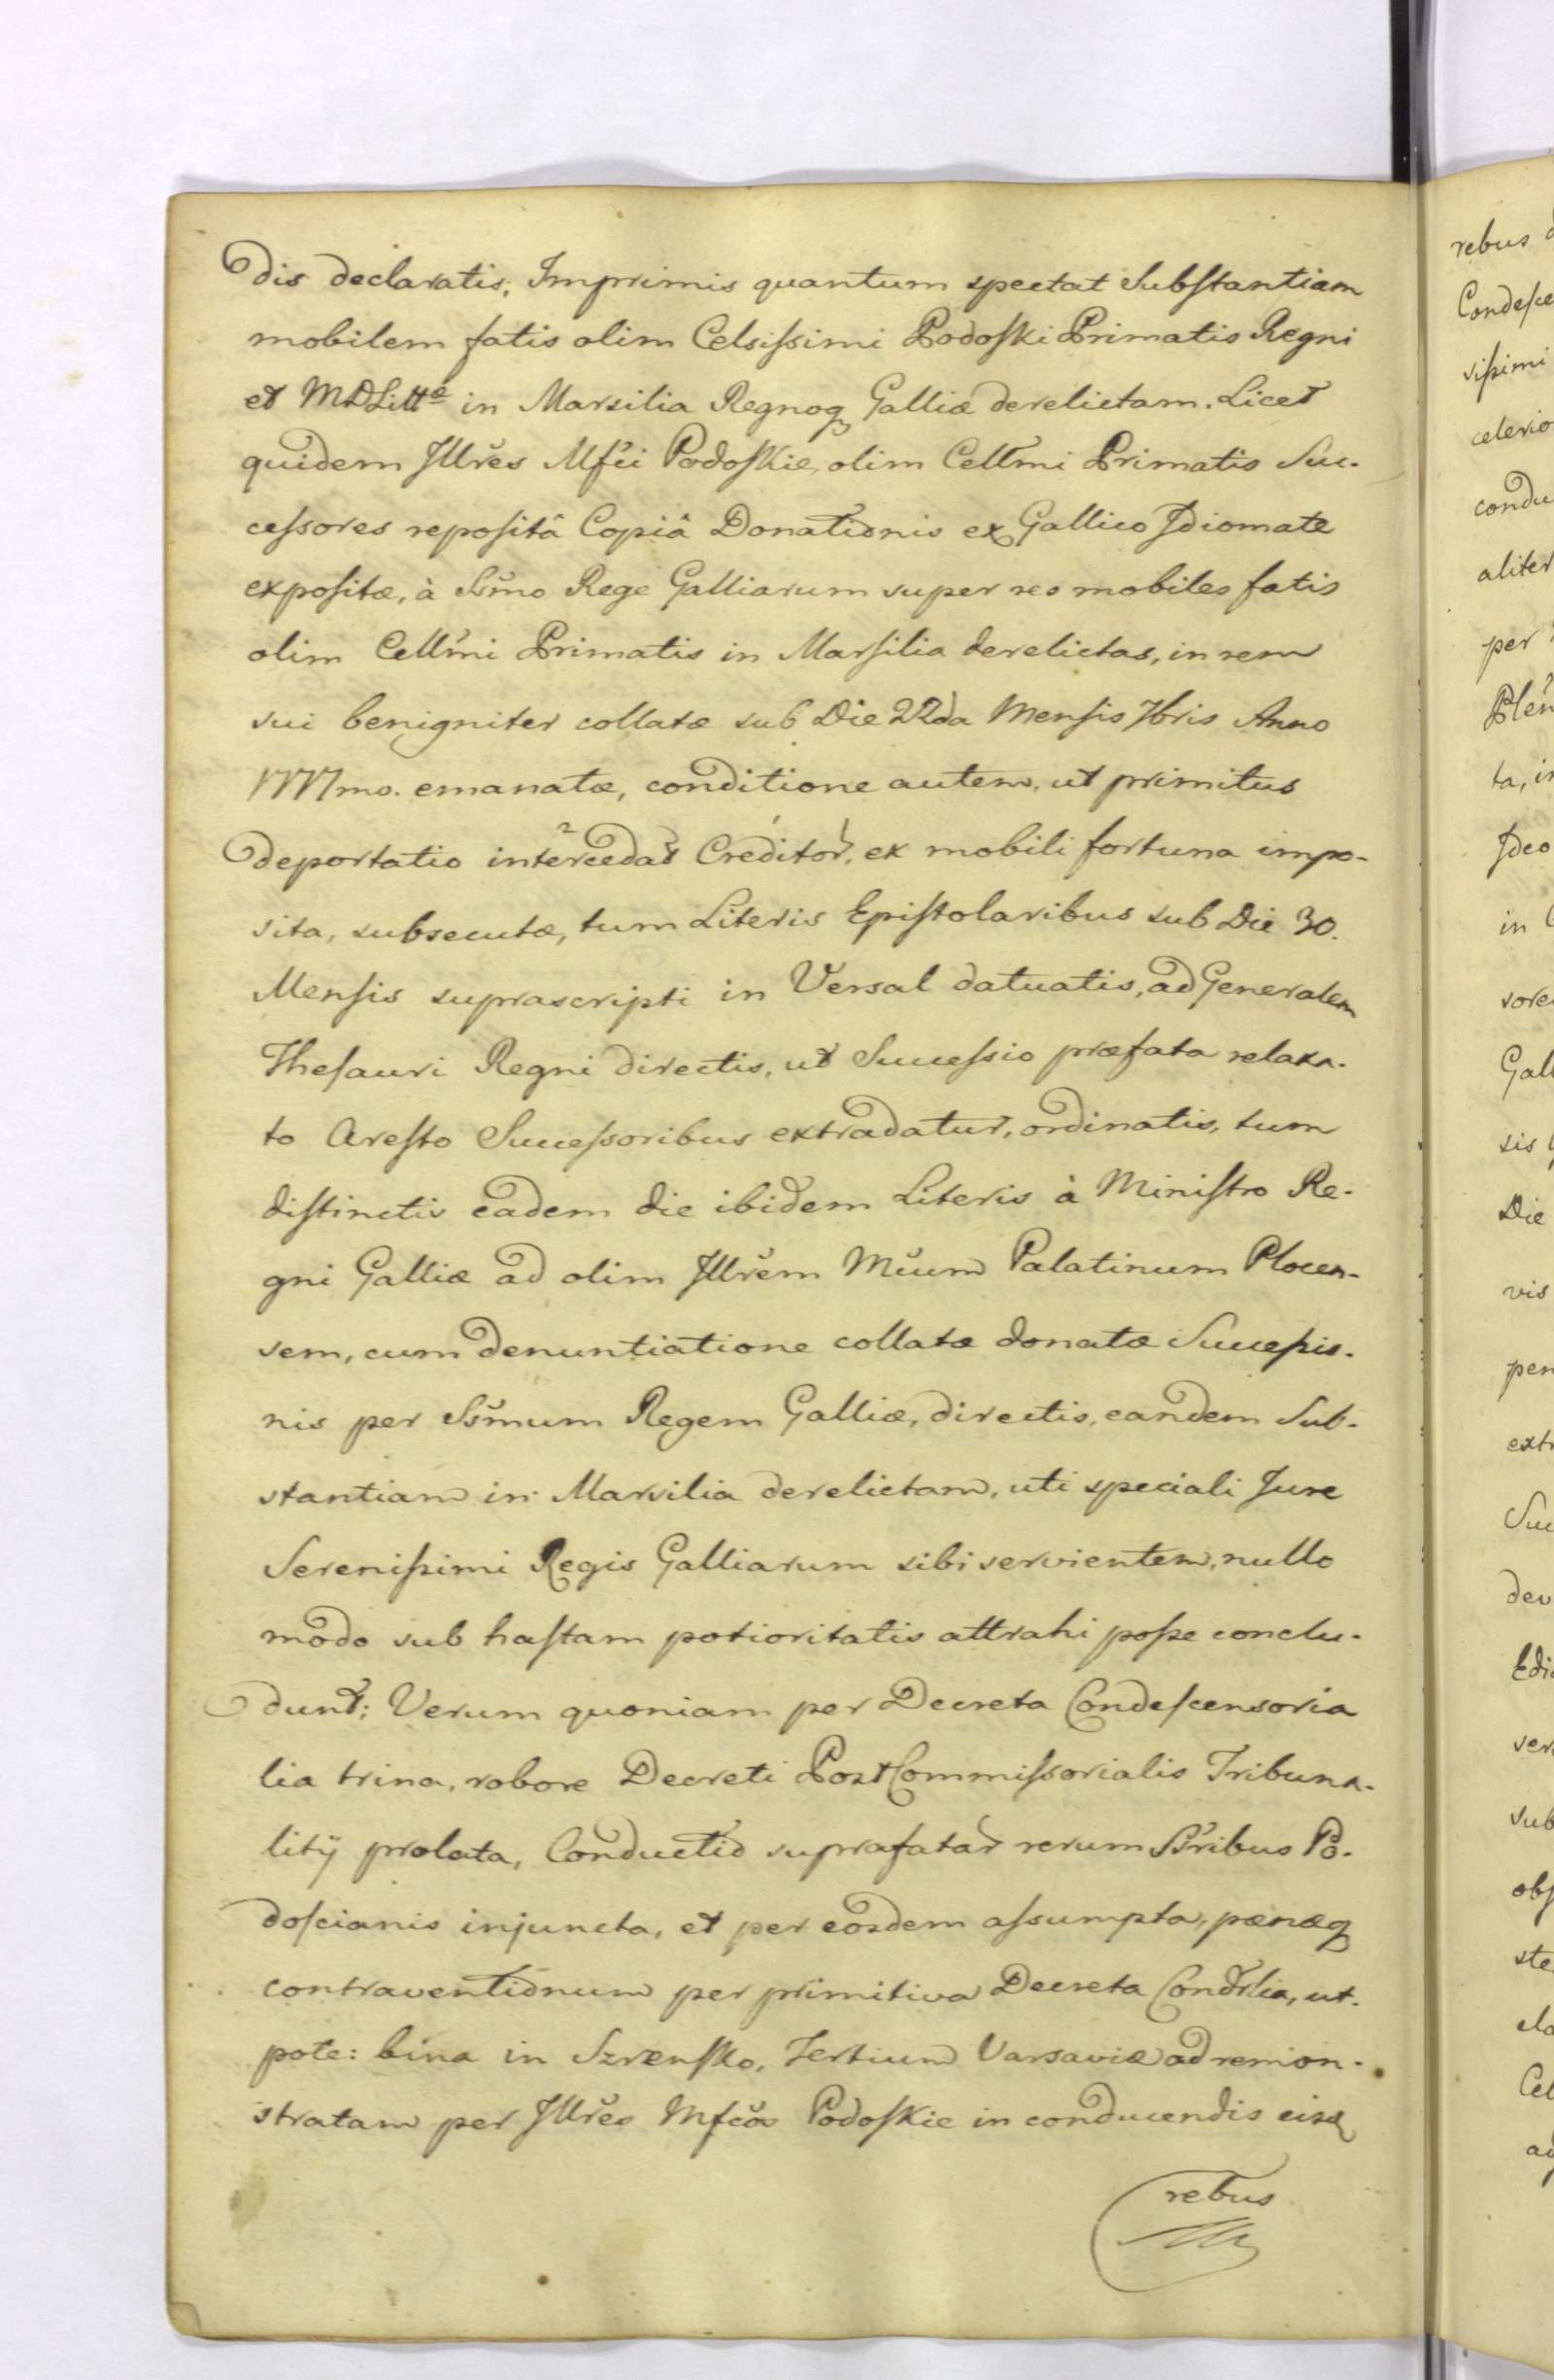 dis declaratis, Imprimis quantum spectat Substantiam
mobilem fatis olim Celsissimi Podoski Primatis Regni
et MDLittæ in Marsilia Regnoq Galliæ derelictam. Licet
quidem Jllres Mfci Podoskie, olim Cellmi Primatis Suc-
cessores repositâ Copiâ Donationis ex Gallico Jdiomate
expositæ, à Ssmo Rege Galliarum super res mobiles fatis
olim Cellmi Primatis in Marsilia derelictas, in rem
sui benigniter collatæ sub Die 22da Mensis 7bris Anno
1777mo. emanatæ, conditione autem, ut primitus
deportatio intercedat Creditor, ex mobili fortuna impo-
sita, subsecutæ, tum Literis Epistolaribus sub Die 30.
Mensis suprascripti in Versal datuatis, ad Generalem
Thesauri Regni directis, ut Successio præfata relaxa-
to Aresto Successoribus extradatur, ordinatis, tum
distinctis eadem die ibidem Literis à Ministro Re-
gni Galliæ ad olim Jllrem Mcum Palatinum Plocen-
sem, cum denuntiatione collatæ donatæ Successio-
nis per Ssmum Regem Galliæ, directis, eandem Sub-
stantiam in Marsilia derelictam, uti speciali Jure
Serenissimi Regis Galliarum sibi servientem, nullo
modo sub hastam potioritatis attrahi posse conclu-
dunt; Verum quoniam per Decreta Condescensoria
lia trina, robore Decreti Post Commissorialis Tribuna-
litij prolata, Conductio suprafatar rerum SSribus Po-
doscianis injuncta, et per eosdem assumpta, pænæq
contraventionum per primitiva Decreta Condrlia, ut-
pote: bina in Szrensko, Tertium Varsaviæ ad remon-
stratam per Jllres Mfcos Podoskie in conducendis eisq
rebus